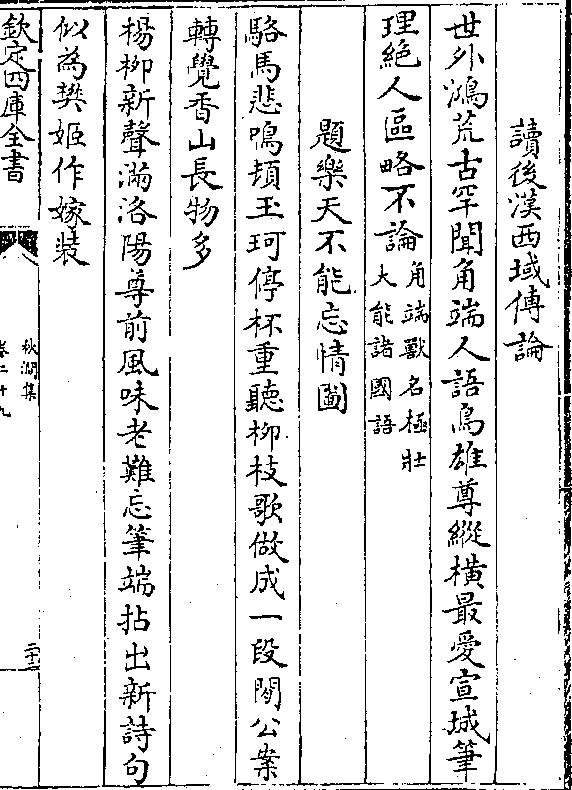 讀後漢西域傳論
世外鴻荒古罕聞角端人語鳥雄尊縱橫最愛宣城筆
理絶人區略不論
角端獸名極壯
大能諸國語
題樂天不能忘情圖
駱馬悲鳴頓玉珂停杯重聽柳枝歌做成一段閒公案
轉覺香山長物多
楊柳新聲滿洛陽尊前風味老難忘筆端拈出新詩句
似為樊姬作嫁裝
欽定四庫全書
秋澗集
卷二十九